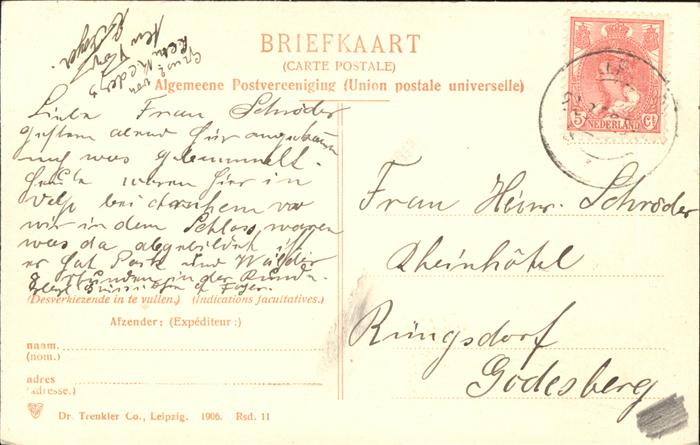 BRIEFKAART
(CARTE POSTALE)
Algemeene Postvereeniging (Union postale universelle)
5 Ct
NEDERLAND
Liebe Frau Schröder
Gestern abend hier
und was
Heute waren hier in
Velp bei Arnhem
wir in dem Schloss, waren
was da abgebildet ist
er hat Park und Wälder
Stunden in der Runde.
(Desverkiezende in te vullen.) (Indications facultatives.)
Afzender: (Expéditeur:)
naam
(nom.)
adres
(adresse.)
Dr. Trenkler Co., Leipzig. 1906. Rsd. 11
Frau Heinr. Schröder
Rheinhôtel
Rüngsdorf
Godesberg